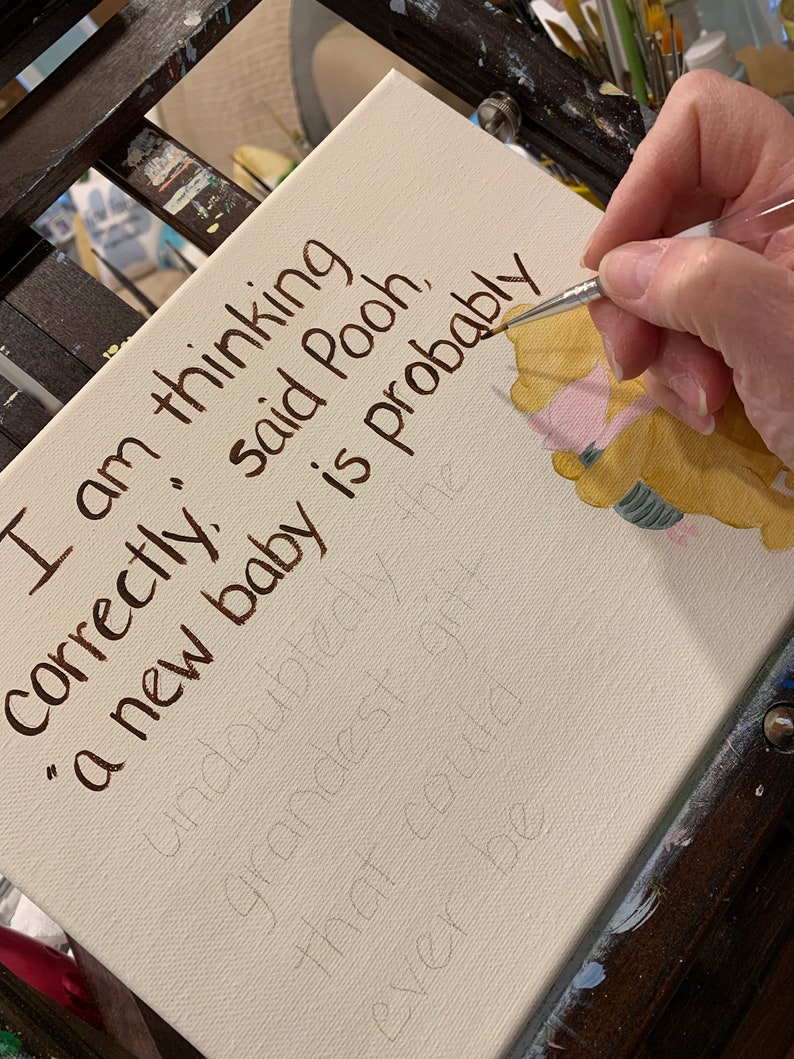 I am thinking
correctly," said Pooh,
"a new baby is probably
undoubtedly the
grandest gift
that could
ever be